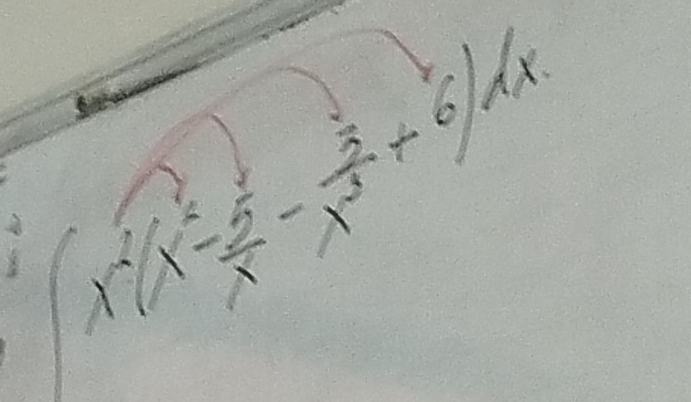 ∫ x²(x² - 5/x - 5/x³ + 6) dx.